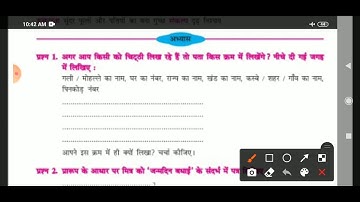 10:42 AM
अभ्यास
प्रश्न 1. अगर आप किसी को चिट्ठी लिख रहे हैं तो पता किस क्रम में लिखेंगे? नीचे दी गई जगह
में लिखिए :
गली / मोहल्ले का नाम, घर का नंबर, राज्य का नाम, खंड का नाम, कस्बे / शहर / गाँव का नाम,
पिनकोड नंबर
आपने इस क्रम में ही क्यों लिखा? चर्चा कीजिए।
प्रश्न 2. प्रारूप के आधार पर मित्र को 'जन्मदिन बधाई' के संदर्भ में